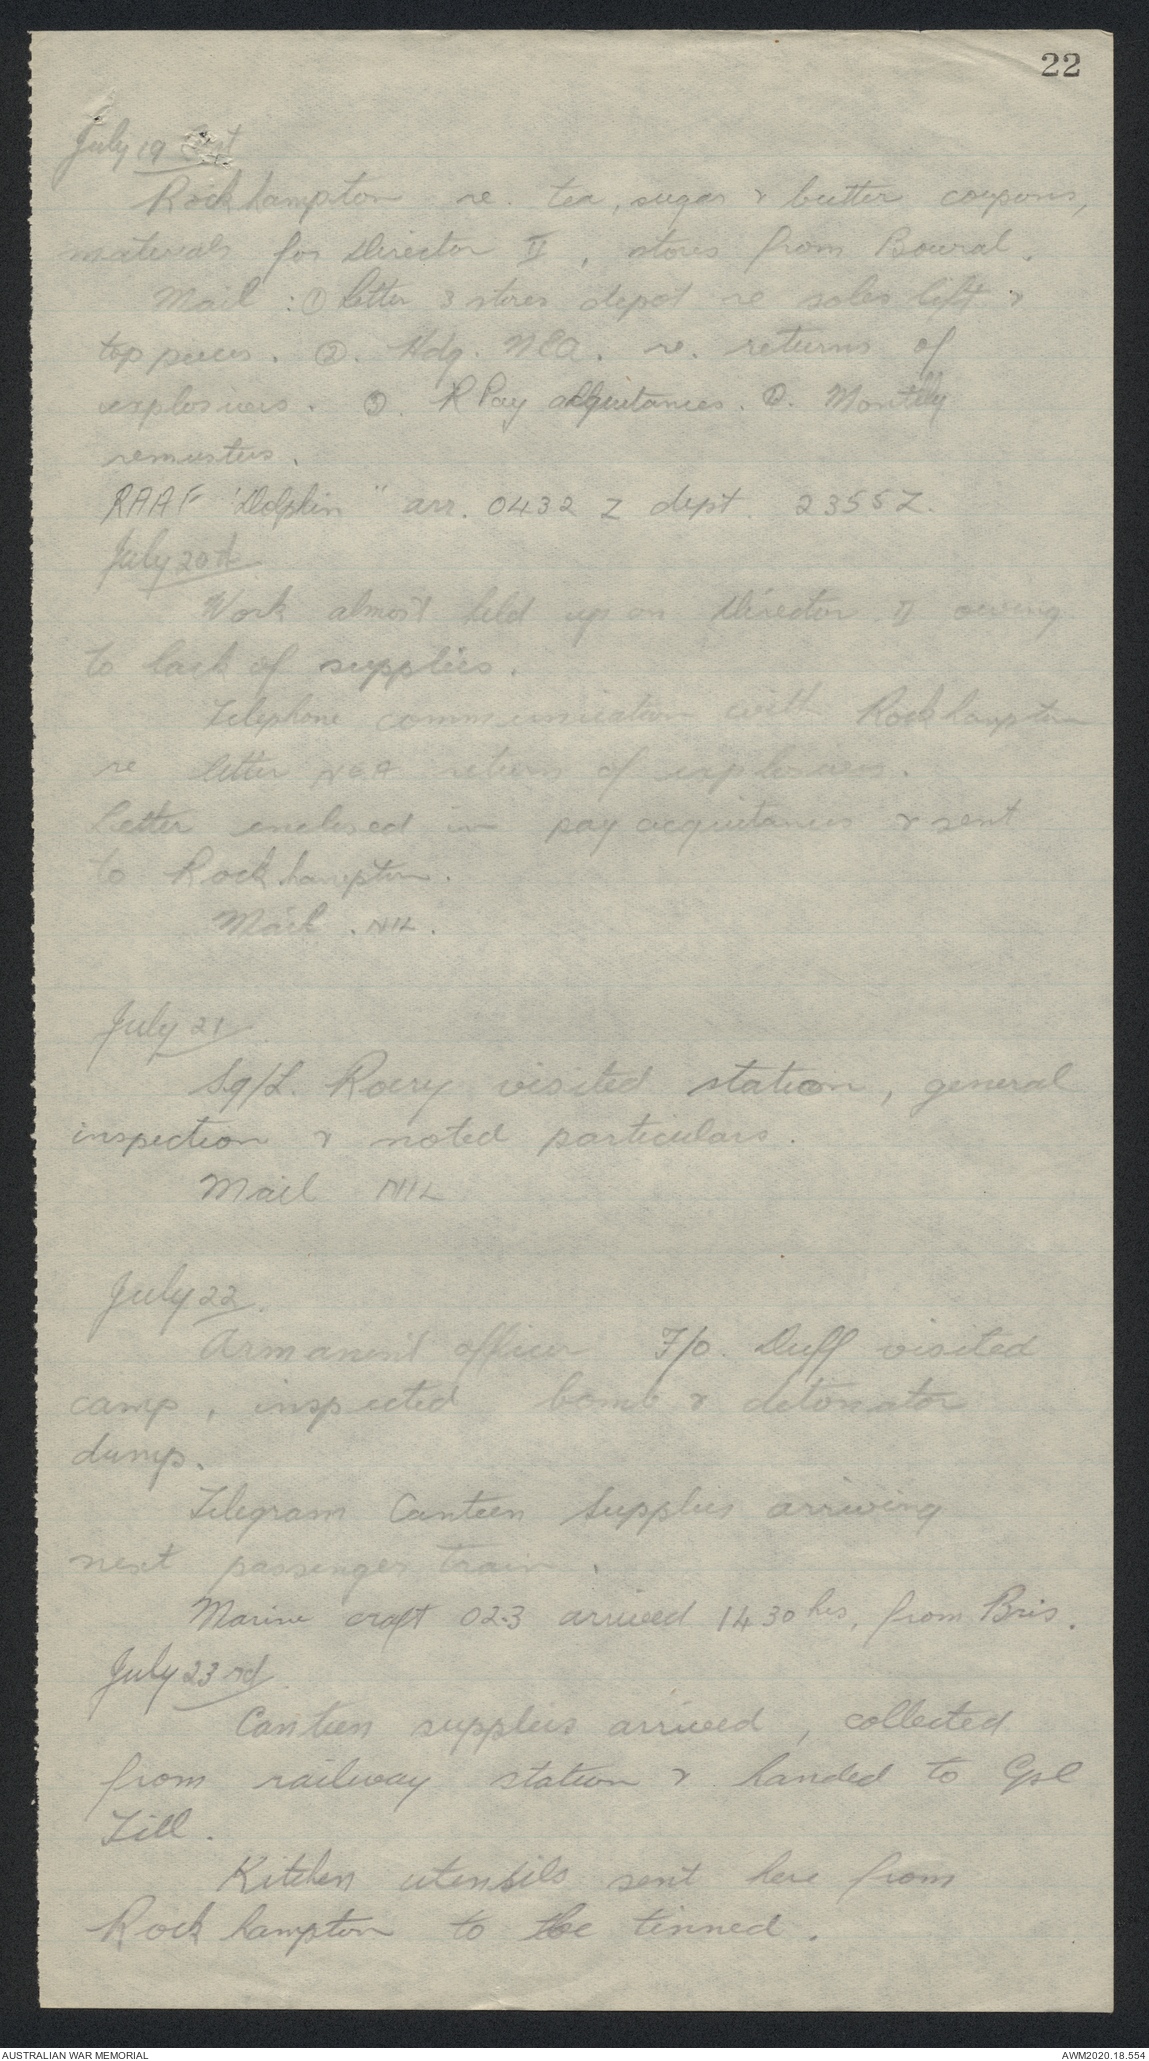 22
July 19 Cont
Rockhampton re. tea, sugar & butter coupons,
materials for Director II, stores from Bowral.
Mail : ① letter 3 stores depot re soles left &
top pieces. ②. Hdq. NEA. re. returns of
explosives. ③. R Pay acquitances. ④. Monthly
remusters.
RAAF "Dolphin" arr. 0432 Z dept. 2355Z.
July 20th
Work almost held up on Director II owing
to lack of supplies.
Telephone communication with Rockhampton
re letter NEA return of explosives.
Letter enclosed in pay acquitances & sent
to Rockhampton.
Mail . NIL.
July 21
Sq/L. Roery visited station, general
inspection & noted particulars.
Mail NIL
July 22.
Armanent officer F/O. Duff visited
camp, inspected bomb & detonator
dump.
Telegram Canteen Supplies arriving
next passenger train.
Marine craft 023 arrived 1430 hrs, from Bris.
July 23rd.
Canteen supplies arrived, collected
from railway station & handed to Cpl
Till.
Kitchen utensils sent here from
Rockhampton to be tinned.
AUSTRALIAN WAR MEMORIAL
AWM2020.18.554